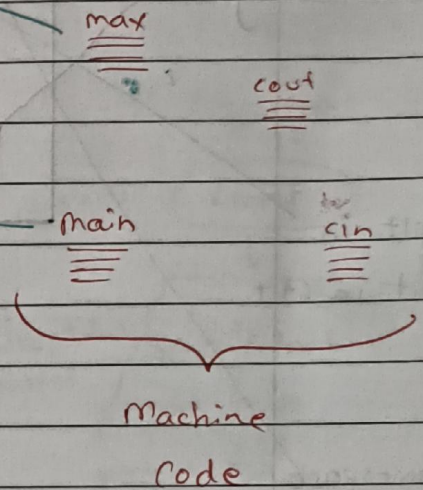 max
cout
main
cin
Machine
Code